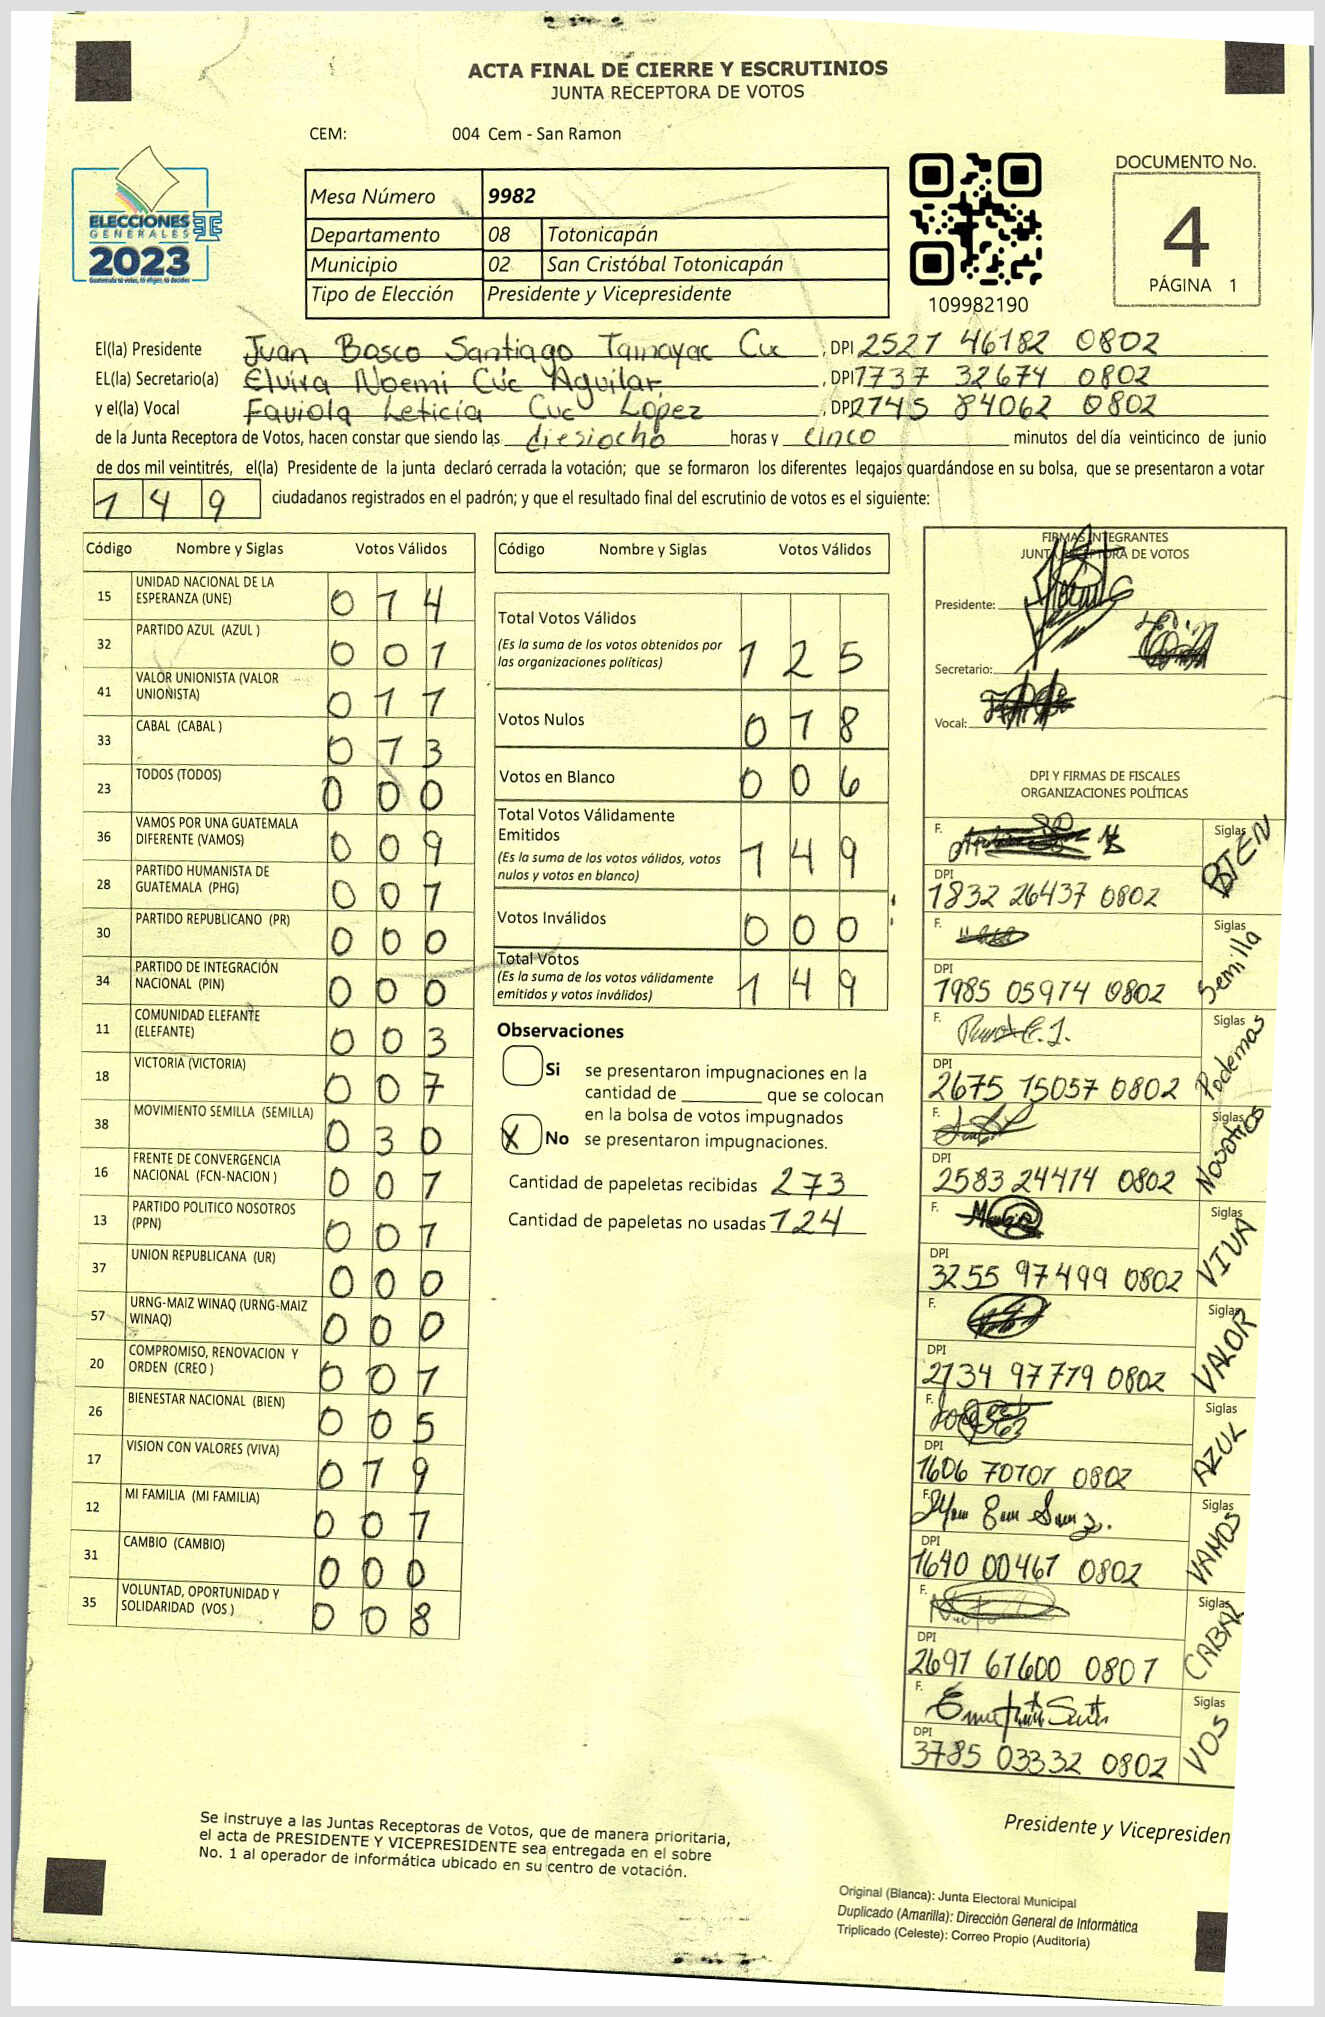 ACTA FINAL DE CIERRE Y ESCRUTINIOS
JUNTA RECEPTORA DE VOTOS
CEM: 004 Cem - San Ramon
ELECCIONES
GENERALES
2023
Guatemala tú votas, tú eliges, tú decides
TSE
Mesa Número 9982
Departamento 08 Totonicapán
Municipio 02 San Cristóbal Totonicapán
Tipo de Elección Presidente y Vicepresidente
109982190
DOCUMENTO No.
4
PÁGINA 1
El(la) Presidente Juan Bosco Santiago Tamayac Cuc , DPI 2527 46182 0802
EL(la) Secretario(a) Elvira Noemi Cuc Aguilar , DPI 1737 32674 0802
y el(la) Vocal Faviola Leticia Cuc López , DPI 2745 84062 0802
de la Junta Receptora de Votos, hacen constar que siendo las diesiocho horas y cinco minutos del día veinticinco de junio
de dos mil veintitrés, el(la) Presidente de la junta declaró cerrada la votación; que se formaron los diferentes legajos guardándose en su bolsa, que se presentaron a votar
149 ciudadanos registrados en el padrón; y que el resultado final del escrutinio de votos es el siguiente:
Código Nombre y Siglas Votos Válidos
15 UNIDAD NACIONAL DE LA
ESPERANZA (UNE) 014
32 PARTIDO AZUL (AZUL ) 001
41 VALOR UNIONISTA (VALOR
UNIONISTA) 011
33 CABAL (CABAL ) 013
23 TODOS (TODOS) 000
36 VAMOS POR UNA GUATEMALA
DIFERENTE (VAMOS) 009
28 PARTIDO HUMANISTA DE
GUATEMALA (PHG) 001
30 PARTIDO REPUBLICANO (PR) 000
34 PARTIDO DE INTEGRACIÓN
NACIONAL (PIN) 000
11 COMUNIDAD ELEFANTE
(ELEFANTE) 003
18 VICTORIA (VICTORIA) 007
38 MOVIMIENTO SEMILLA (SEMILLA) 030
16 FRENTE DE CONVERGENCIA
NACIONAL (FCN-NACION ) 001
13 PARTIDO POLITICO NOSOTROS
(PPN) 001
37 UNION REPUBLICANA (UR) 000
57 URNG-MAIZ WINAQ (URNG-MAIZ
WINAQ) 000
20 COMPROMISO, RENOVACION Y
ORDEN (CREO ) 001
26 BIENESTAR NACIONAL (BIEN) 005
17 VISION CON VALORES (VIVA) 019
12 MI FAMILIA (MI FAMILIA) 001
31 CAMBIO (CAMBIO) 000
35 VOLUNTAD, OPORTUNIDAD Y
SOLIDARIDAD (VOS ) 008
Código Nombre y Siglas Votos Válidos
Total Votos Válidos
(Es la suma de los votos obtenidos por
las organizaciones políticas) 125
Votos Nulos 018
Votos en Blanco 006
Total Votos Válidamente
Emitidos
(Es la suma de los votos válidos, votos
nulos y votos en blanco) 149
Votos Inválidos 000
Total Votos
(Es la suma de los votos válidamente
emitidos y votos inválidos) 149
Observaciones
Si se presentaron impugnaciones en la
cantidad de ________ que se colocan
en la bolsa de votos impugnados
X No se presentaron impugnaciones.
Cantidad de papeletas recibidas 273
Cantidad de papeletas no usadas 124
FIRMAS INTEGRANTES
JUNTA RECEPTORA DE VOTOS
Presidente:
Secretario:
Vocal:
DPI Y FIRMAS DE FISCALES
ORGANIZACIONES POLÍTICAS
F. Siglas BIEN
DPI
1832 26437 0802
F. Siglas Semilla
DPI
1985 05914 0802
F. Siglas Podemos
DPI
2675 15057 0802
F. Siglas Nosotros
DPI
2583 24414 0802
F. Siglas VIVA
DPI
3255 97499 0802
F. Siglas VALOR
DPI
2134 97719 0802
F. Siglas AZUL
DPI
1606 70101 0802
F. Siglas VAMOS
DPI
1640 00461 0802
F. Siglas CABAL
DPI
2691 61600 0801
F. Siglas VOS
DPI
3785 03332 0802
Se instruye a las Juntas Receptoras de Votos, que de manera prioritaria,
el acta de PRESIDENTE Y VICEPRESIDENTE sea entregada en el sobre
No. 1 al operador de informática ubicado en su centro de votación.
Presidente y Vicepresiden
Original (Blanca): Junta Electoral Municipal
Duplicado (Amarilla): Dirección General de Informática
Triplicado (Celeste): Correo Propio (Auditoría)